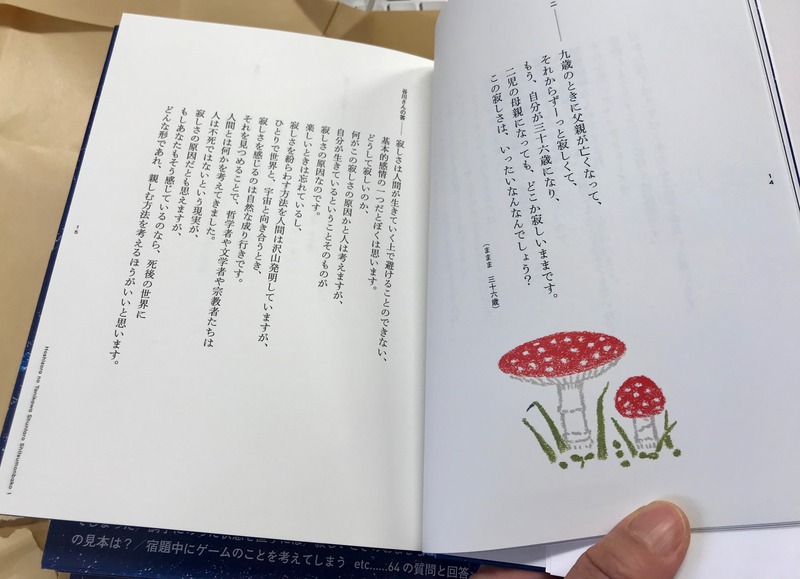 二
九歳のときに父親が亡くなって、
それからずーっと寂しくて、
もう、自分が三十六歳になり、
二児の母親になっても、どこか寂しいままです。
この寂しさは、いったいなんなんでしょう？
（ままま　三十六歳）
14
谷川さんの答――寂しさは人間が生きていく上で避けることのできない、
基本的感情の一つだとぼくは思います。
どうして寂しいのか、
何がこの寂しさの原因かと人は考えますが、
自分が生きているということそのものが
寂しさの原因なのです。
楽しいときは忘れているし、
寂しさを紛らわす方法を人間は沢山発明していますが、
ひとりで世界と、宇宙と向き合うとき、
寂しさを感じるのは自然な成り行きです。
それを見つめることで、哲学者や文学者や宗教者たちは
人間とは何かを考えてきました。
人は不死ではないという現実が、
寂しさの原因だとも思えますが、
もしあなたもそう感じているのなら、死後の世界に
どんな形であれ、親しむ方法を考えるほうがいいと思います。
15
Hoshizora no Tanikawa Shuntaro Shitsumonbako 1
の見本は？／宿題中にゲームのことを考えてしまう etc......64の質問と回答